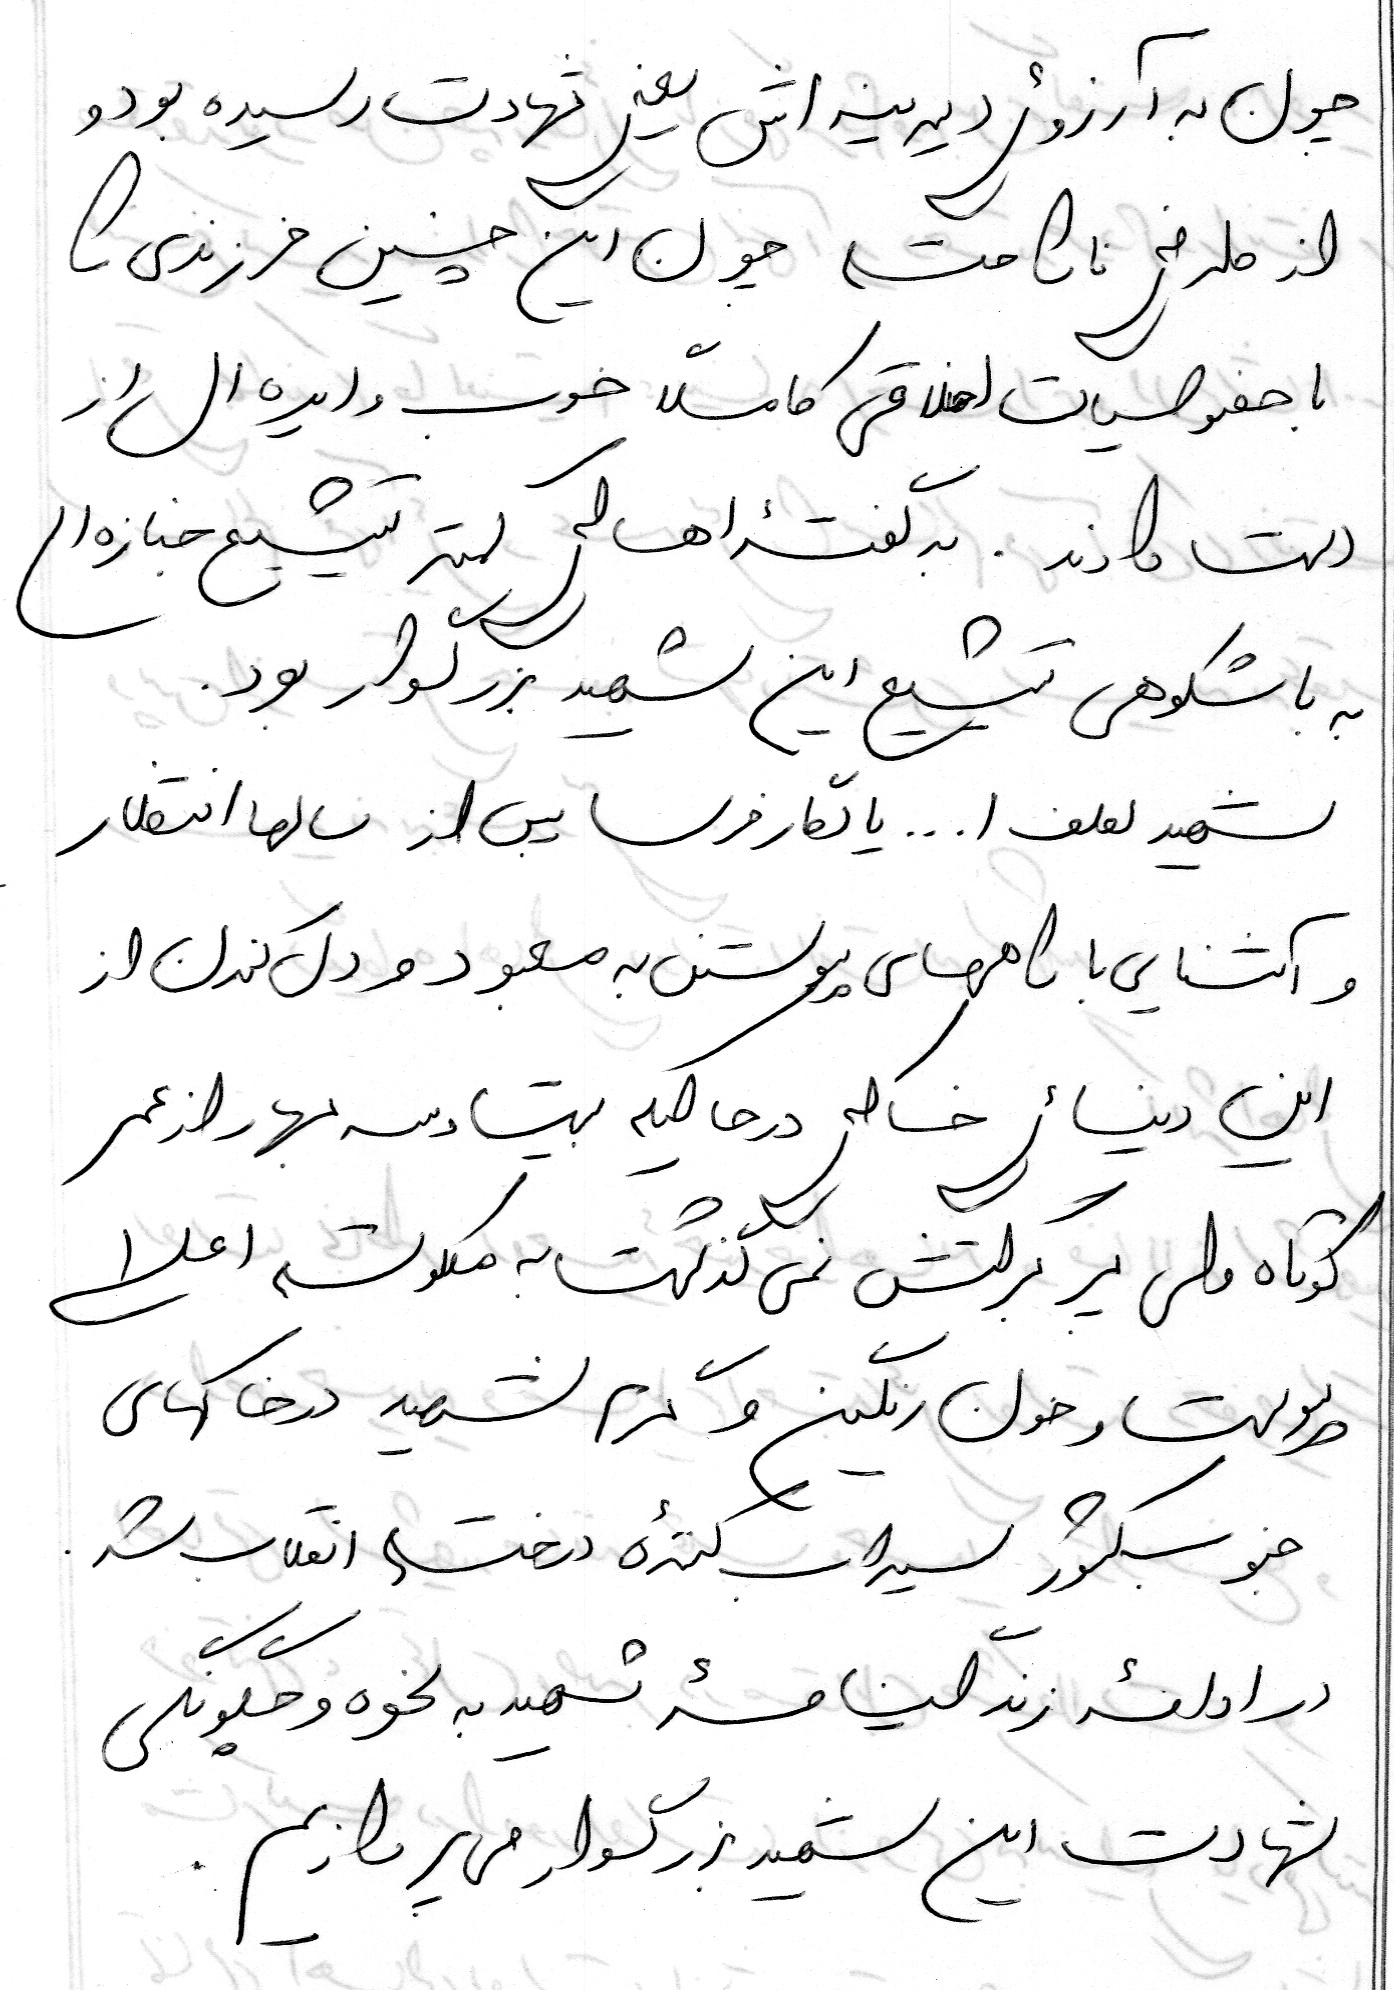 چون به آرزوی دیرینه اش یعنی شهادت رسیده بود و
از طرفی ناراحت چون این چنین فرزندی را
با خصوصیات اخلاقی کاملاً خوب و ایده ال را از
دست دادند . به گفتهٔ اهالی کمتر تشییع جنازه ای
به باشکوهی تشییع این شهید بزرگوار بود .
شهید لطف ا... یادگار فرسا پس از سالها انتظار
و آشنایی با راههای پیوستن به معبود و دل کندن از
این دنیای خاکی در حالیکه بیست و سه بهار از عمر
کوتاه ولی پر برکتش نمی گذشت به ملکوت اعلا
پیوست و خون رنگین و گرم شهید در خاکهای
جنوب کشور سیراب کنندهٔ درخت انقلاب شد .
در ادامهٔ زندگینامهٔ شهید به نحوه و چگونگی
شهادت این شهید بزرگوار می پردازیم .